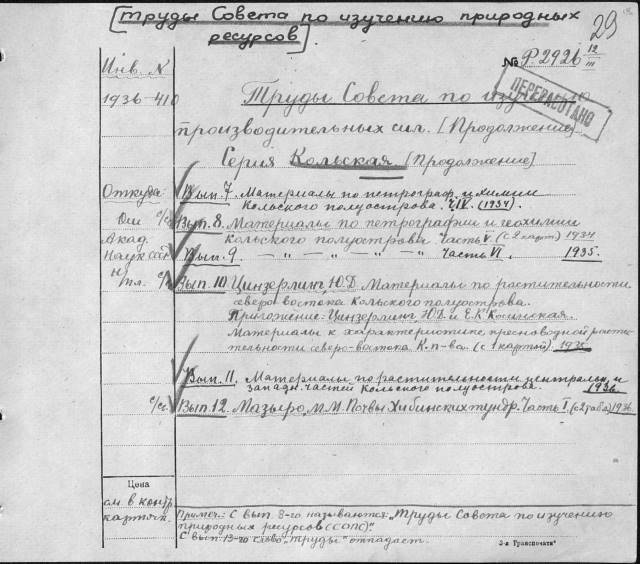 [Труды Совета по изучению природных
ресурсов]
29
№ Р.2926 12/III
Инв. №
1936-410
ПЕРЕРАБОТАНО
Труды Совета по изучению
производительных сил. [Продолжение]
Серия Кольская [Продолжение]
Откуда:
Вып. 7. Материалы по петрограф. и химии
Кольского полуострова. Ч. IV. (1934).
с/сч. Вып. 8. Материалы по петрографии и геохимии
Акад.
Кольского полуострова Часть V. (с 2 карт) 1934
Наук
Вып. 9. — „ — „ — „ — „ — Часть VI. 1935.
Вып. 10 Цинзерлинг, Ю.Д. Материалы по растительности
северо востока Кольского полуострова.
Приложение: Цинзерлинг, Ю.Д. и Е.К. Косинская.
Материалы к характеристике пресноводной расти-
тельности северо-востока К. п-ва. (с 1 картой). 1935
Вып. 11. Материалы по растительности централън. и
западн. частей Кольского полуострова. 1936
с/сч. Вып. 12. Мазыро, М.М. Почвы Хибинских тундр. Часть I. (с 2 табл) 1936.
Цена
см. в контр
карточк.
Примеч.: С вып. 8-го называются: „Труды Совета по изучению
природных ресурсов (СОПС)"
С вып. 13-го слово „труды" отпадает.
3-я Транспечати"